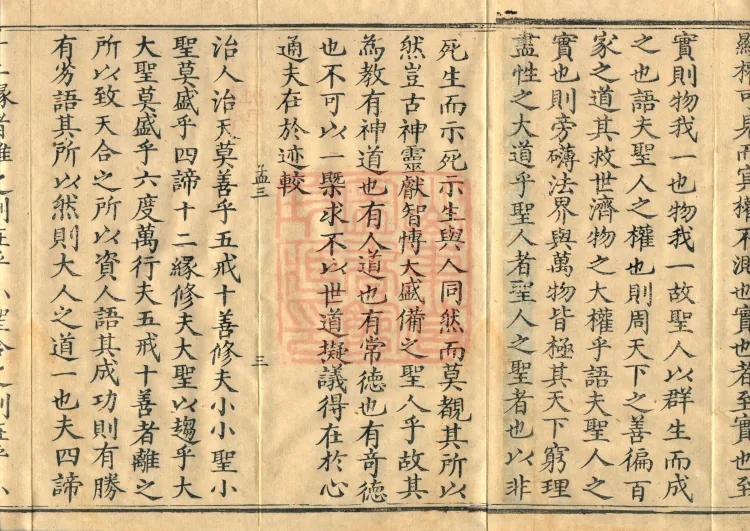 顯權可見而冥權不測也實也者至實也至
實則物我一也物我一故聖人以群生而成
之也語夫聖人之權也則周天下之善徧百
家之道其救世濟物之大權乎語夫聖人之
實也則旁礡法界與萬物皆極其天下窮理
盡性之大道乎聖人者聖人之聖者也以非
死生而示死示生與人同然而莫覩其所以
然豈古神靈獻智愽大盛備之聖人乎故其
為教有神道也有人道也有常德也有奇德
也不可以一槩求不以世道擬議得在於心
通夫在於迹較
孟三 三
治人治天莫善乎五戒十善修夫小小聖小
聖莫盛乎四諦十二緣修夫大聖以趨乎大
大聖莫盛乎六度萬行夫五戒十善者離之
所以致天合之所以資人語其成功則有勝
有劣語其所以然則大人之道一也夫四諦
十二緣者離之則在乎小聖合之則在乎小